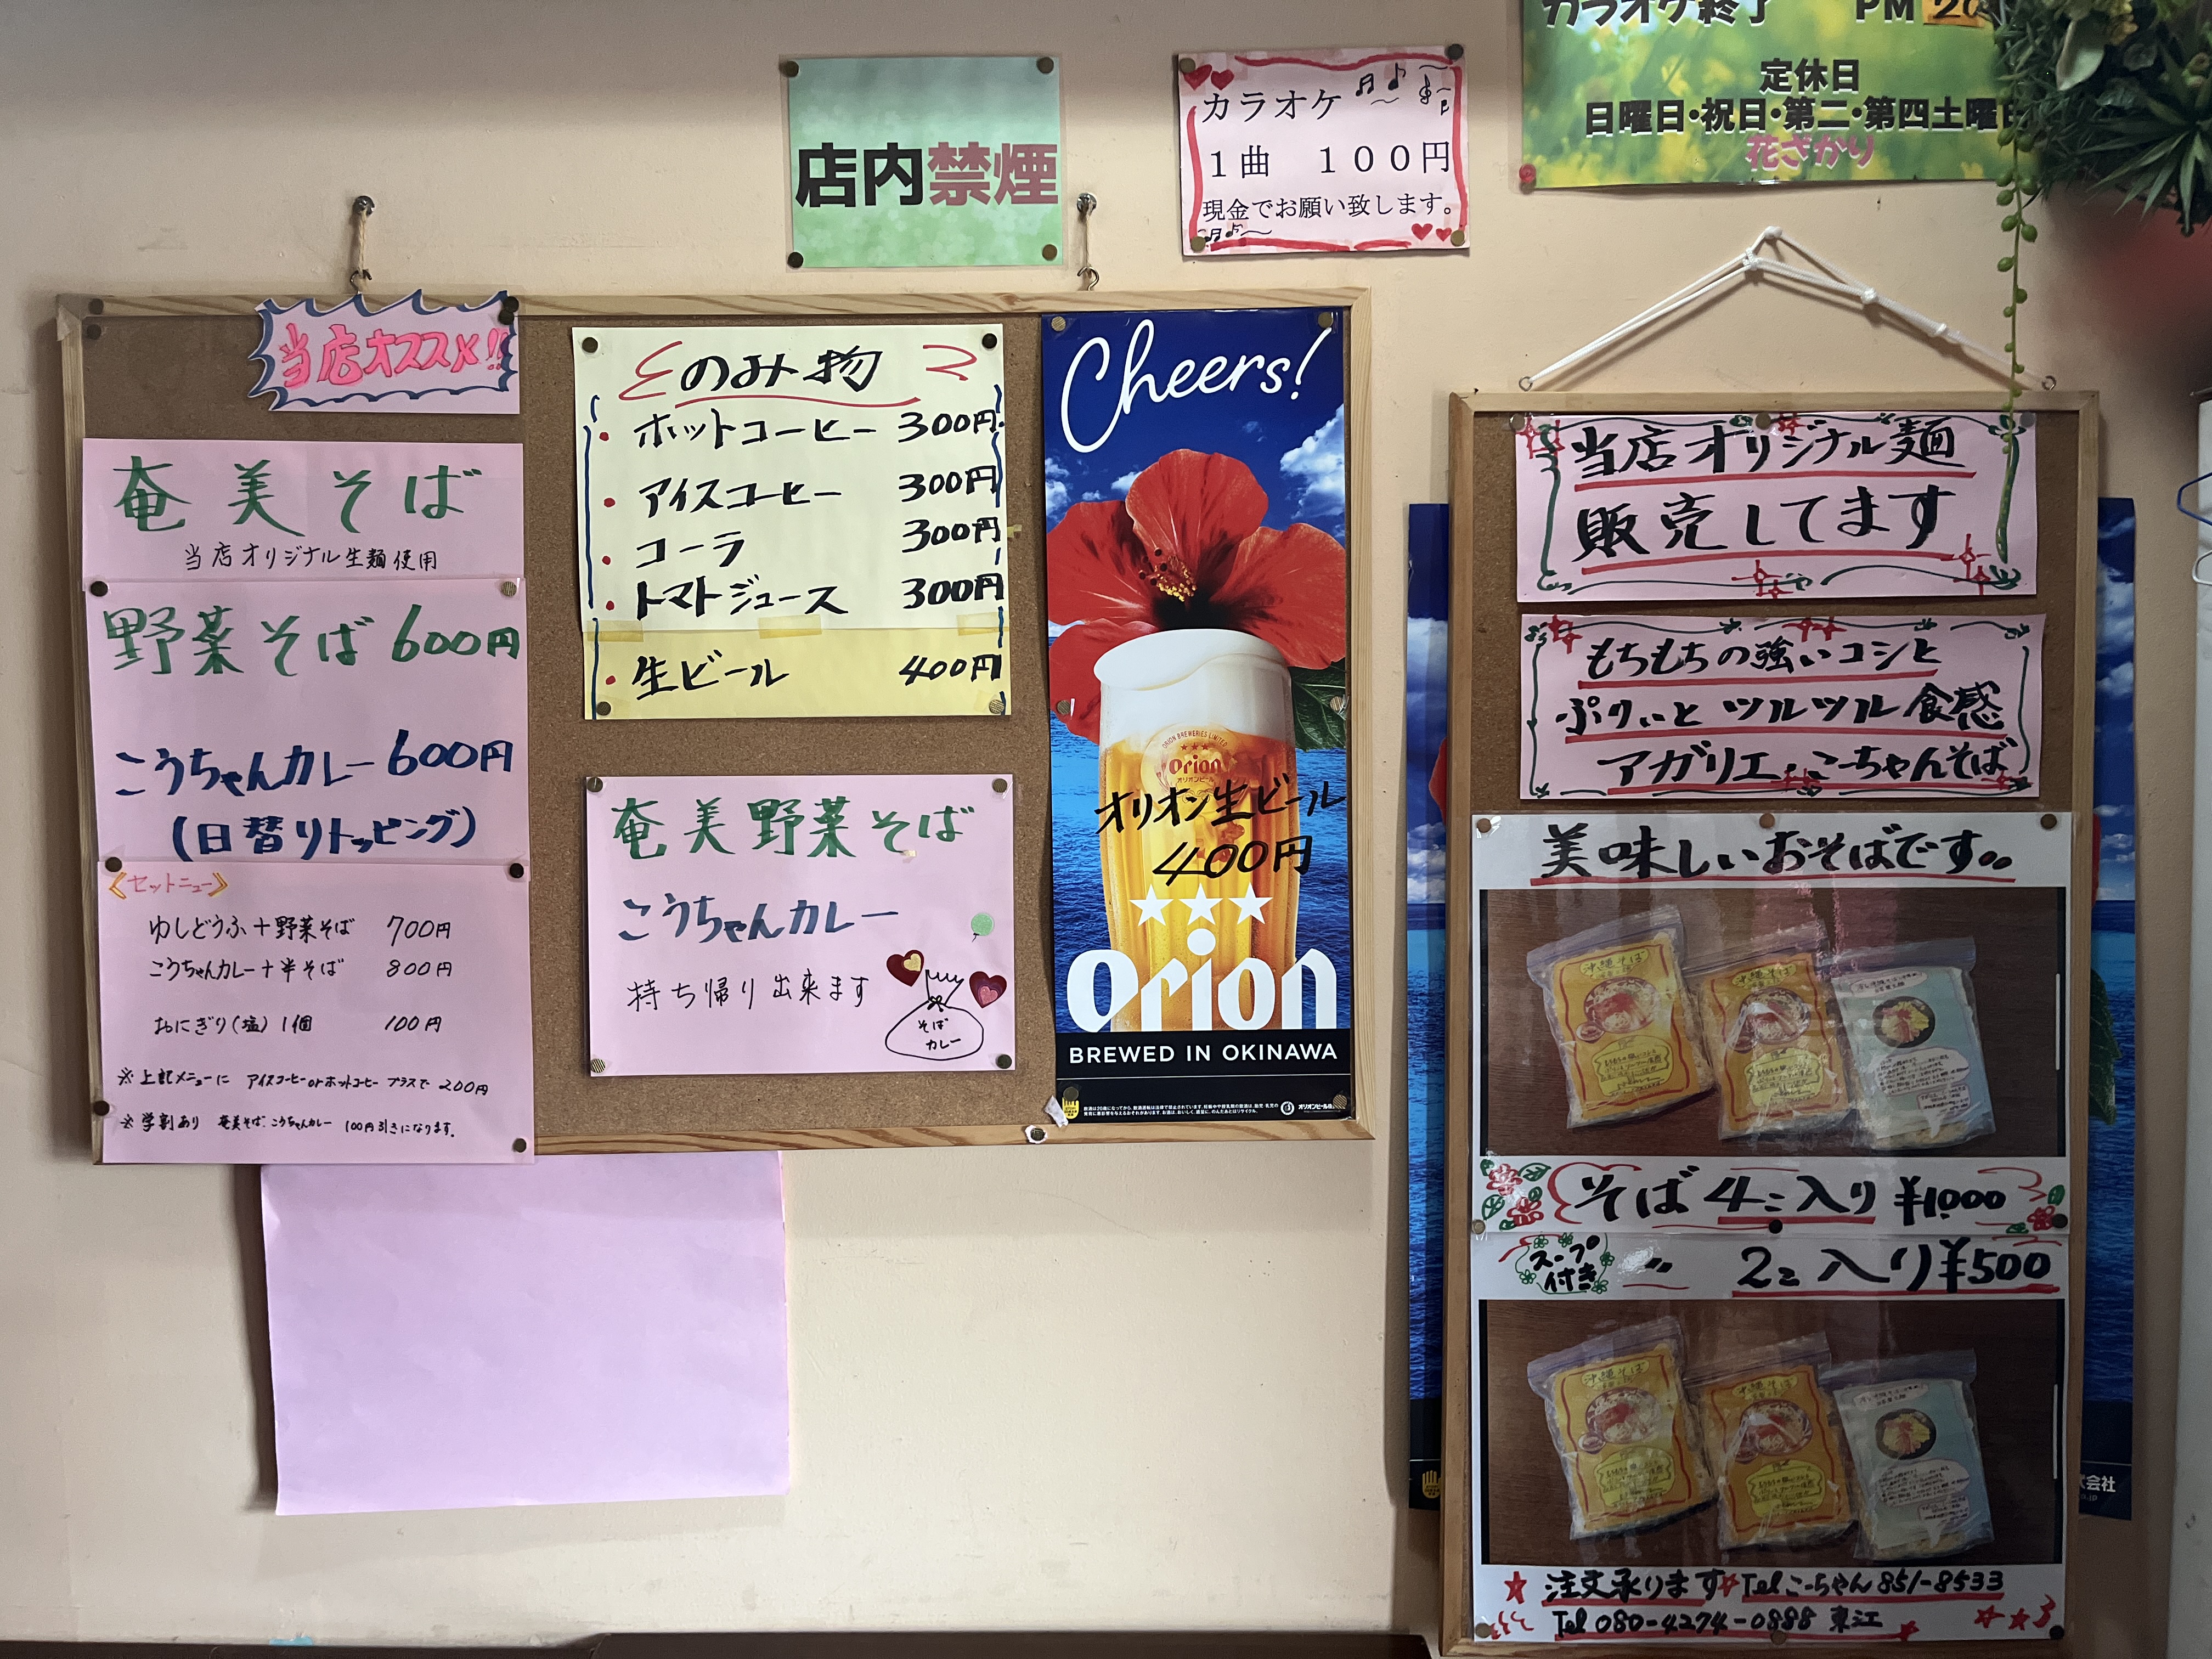 カラオケ終了 PM
定休日
日曜日・祝日・第二・第四土曜日
花ざかり
店内禁煙
カラオケ
1曲 100円
現金でお願い致します。
当店オススメ!!
奄美そば
当店オリジナル生麺使用
野菜そば 600円
こうちゃんカレー 600円
(日替りトッピング)
《セットニュー》
ゆしどうふ+野菜そば 700円
こうちゃんカレー+半そば 800円
おにぎり(塩)1個 100円
※上記メニューに アイスコーヒーorホットコーヒー プラスで 200円
※学割あり 奄美そば.こうちゃんカレー 100円引きになります.
のみ物
・ホットコーヒー 300円
・アイスコーヒー 300円
・コーラ 300円
・トマトジュース 300円
・生ビール 400円
奄美野菜そば
こうちゃんカレー
持ち帰り出来ます
そば
カレー
Cheers!
ORION BREWERIES LIMITED
Orion
オリオンビール
オリオン生ビール
400円
Orion
BREWED IN OKINAWA
当店オリジナル麺
販売してます
もちもちの強いコシと
ぷりぃと ツルツル食感
アガリエ・こーちゃんそば
美味しいおそばです。。
沖縄そば
沖縄そば
そば 4コ入り ¥1,000
スープ付き 〃 2コ入り ¥500
沖縄そば
沖縄そば
式会社
★注文承ります☆Tel こーちゃん 851-8533
Tel 080-4274-0888 東江